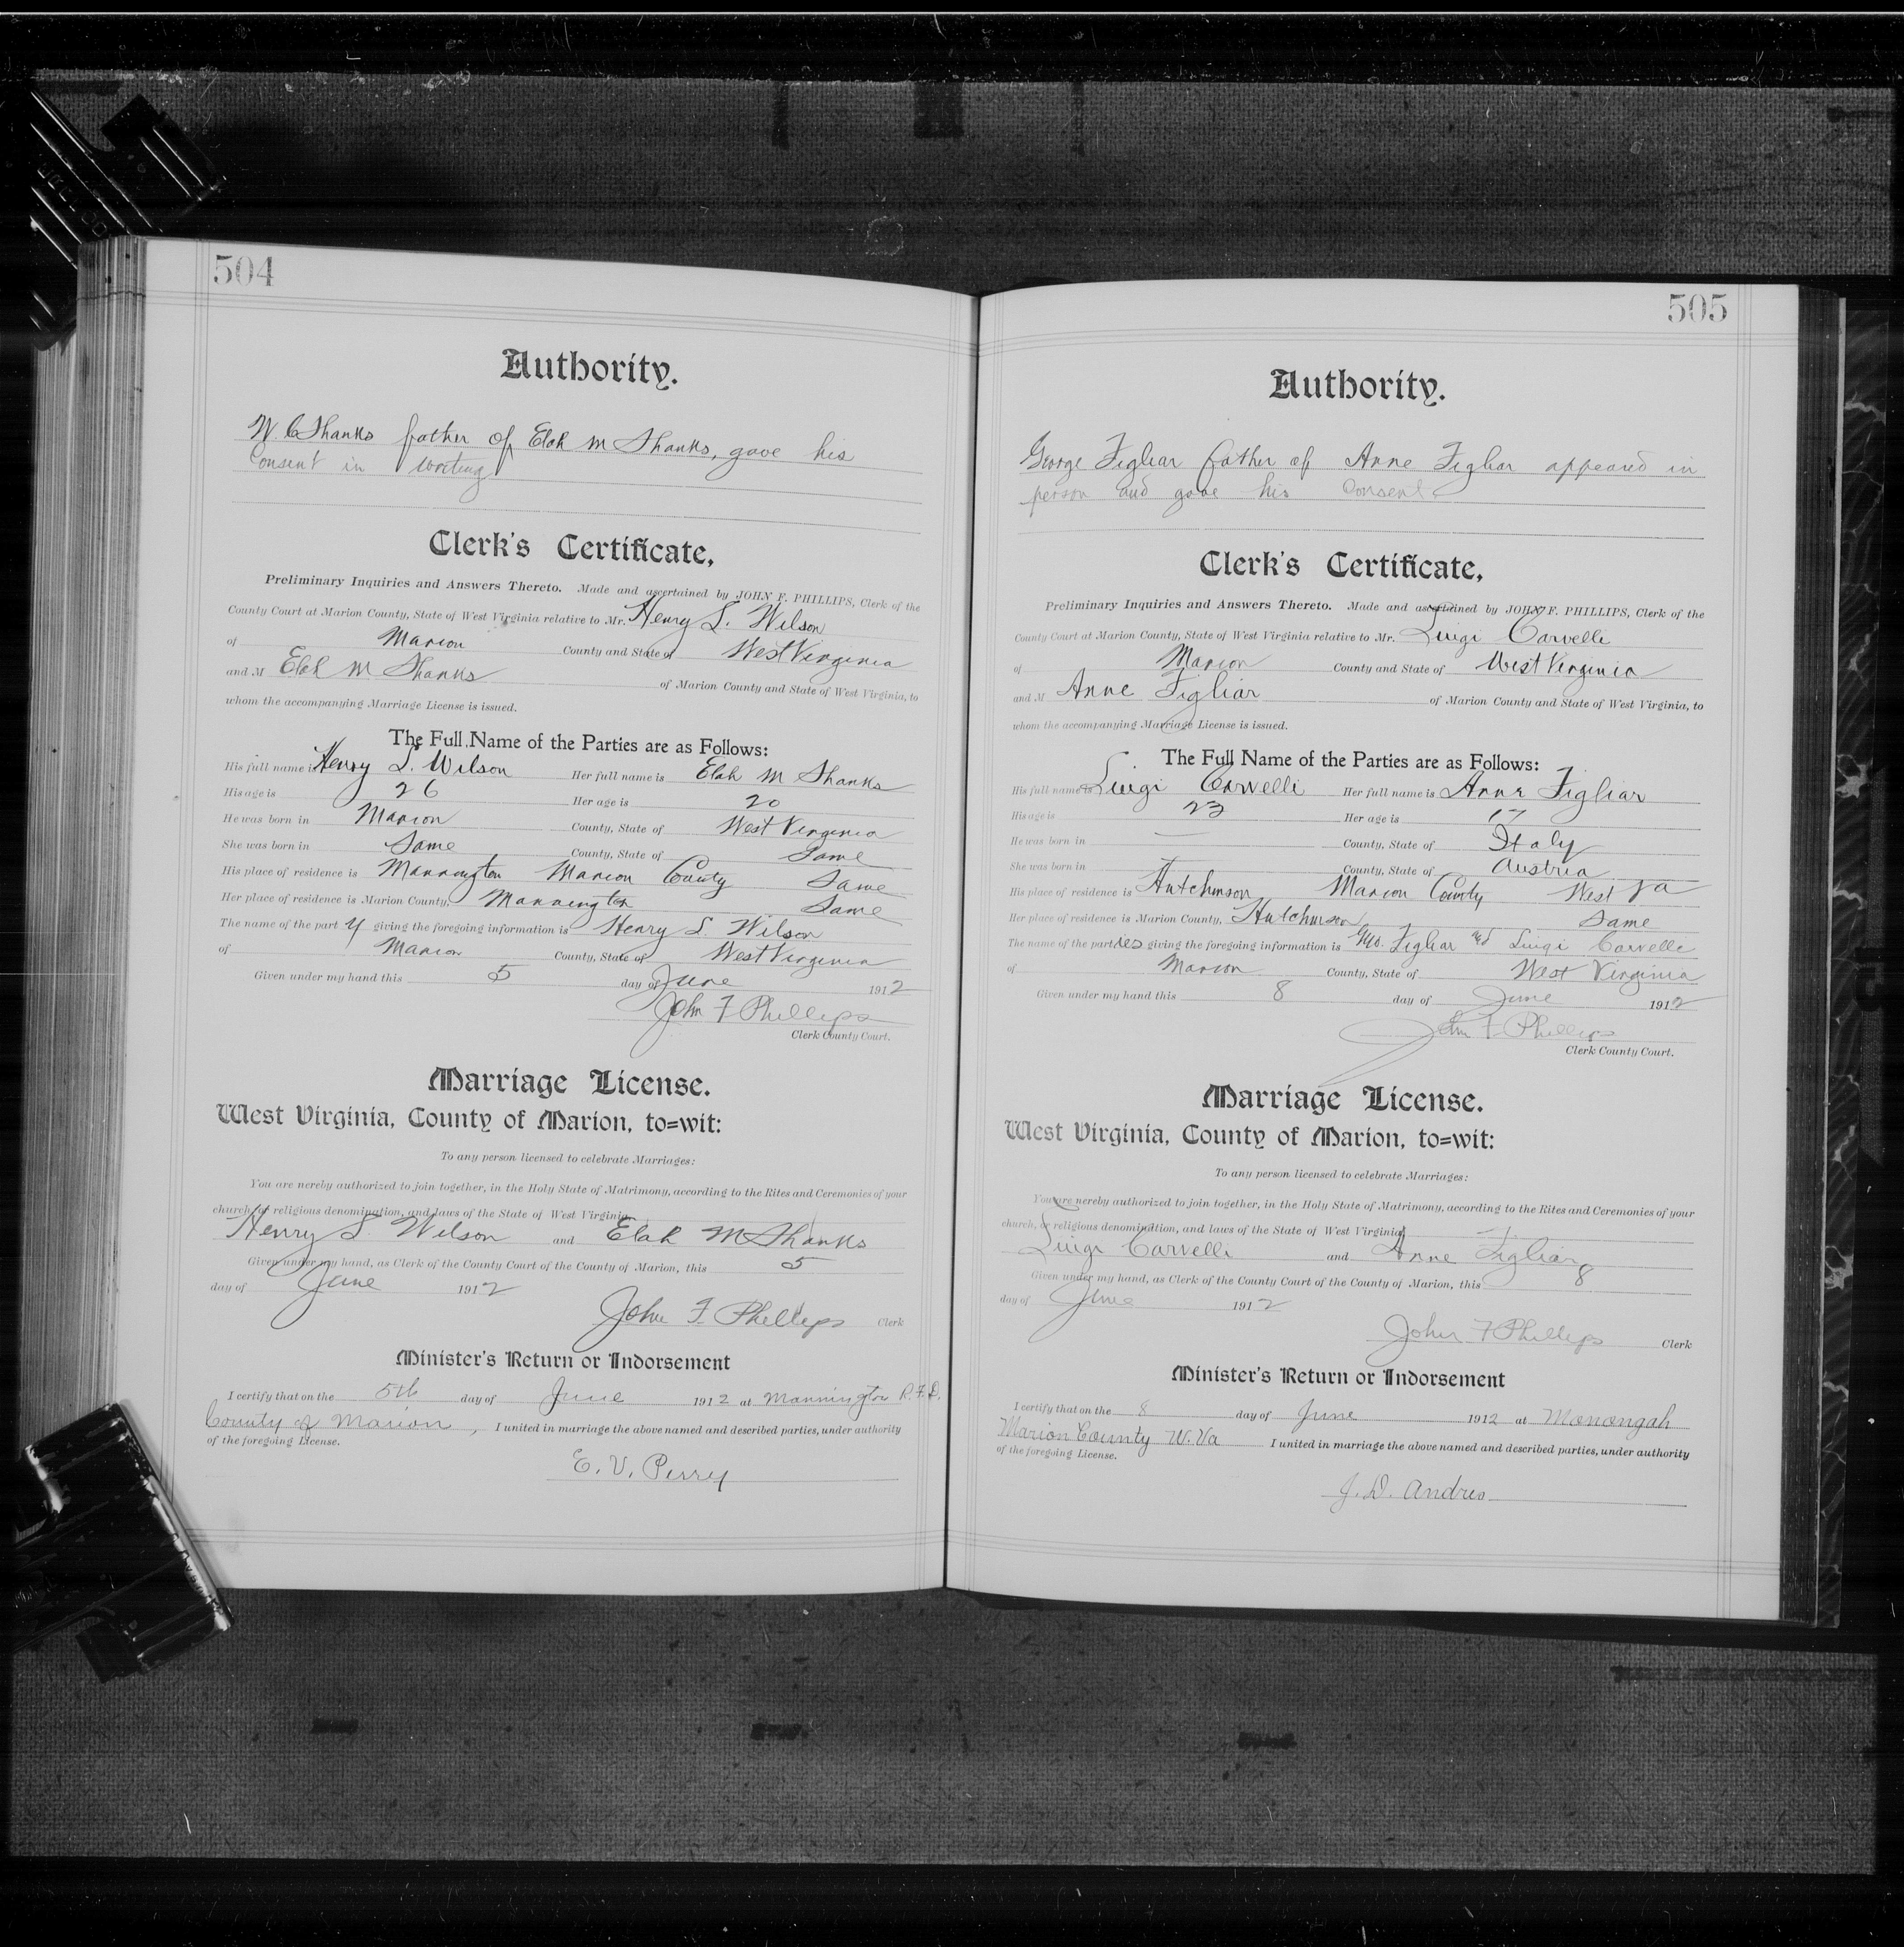 504
Authority.
W. C Shanks father of Elah M Shanks, gave his
Consent in writing
Clerk's Certificate,
Preliminary Inquiries and Answers Thereto. Made and ascertained by JOHN F. PHILLIPS, Clerk of the
County Court at Marion County, State of West Virginia relative to Mr. Henry S. Wilson
of Marion County and State of West Virginia
and M Elah M Shanks of Marion County and State of West Virginia, to
whom the accompanying Marriage License is issued.
The Full Name of the Parties are as Follows:
His full name is Henry S. Wilson Her full name is Elah M Shanks
His age is 26 Her age is 20
He was born in Marion County, State of West Virginia
She was born in Same County, State of Same
His place of residence is Mannington Marion County Same
Her place of residence is Marion County, Mannington Same
The name of the part y giving the foregoing information is Henry S. Wilson
of Marion County, State of West Virginia
Given under my hand this 5 day of June 1912
John F Phillips
Clerk County Court.
Marriage License.
West Virginia, County of Marion, to=wit:
To any person licensed to celebrate Marriages:
You are hereby authorized to join together, in the Holy State of Matrimony, according to the Rites and Ceremonies of your
church, or religious denomination, and laws of the State of West Virginia,
Henry S. Wilson and Elah M Shanks
Given under my hand, as Clerk of the County Court of the County of Marion, this 5
day of June 1912
John F. Phillips Clerk
Minister's Return or Indorsement
I certify that on the 5th day of June 1912 at Mannington R.F.D.
County of Marion, I united in marriage the above named and described parties, under authority
of the foregoing License.
E. V. Perry
505
Authority.
George Figliar father of Anne Figliar appeared in
person and gave his Consent
Clerk's Certificate,
Preliminary Inquiries and Answers Thereto. Made and ascertained by JOHN F. PHILLIPS, Clerk of the
County Court at Marion County, State of West Virginia relative to Mr. Luigi Carvelli
of Marion County and State of West Virginia
and M Anne Figliar of Marion County and State of West Virginia, to
whom the accompanying Marriage License is issued.
The Full Name of the Parties are as Follows:
His full name is Luigi Carvelli Her full name is Anne Figliar
His age is 23 Her age is 17
He was born in — County, State of Italy
She was born in County, State of Austria
His place of residence is Hutchinson Marion County West Va
Her place of residence is Marion County, Hutchinson Same
The name of the parties giving the foregoing information is Geo. Figliar and Luigi Carvelli
of Marion County, State of West Virginia
Given under my hand this 8 day of June 1912
John F Phillips
Clerk County Court.
Marriage License.
West Virginia, County of Marion, to=wit:
To any person licensed to celebrate Marriages:
You are hereby authorized to join together, in the Holy State of Matrimony, according to the Rites and Ceremonies of your
church, or religious denomination, and laws of the State of West Virginia,
Luigi Carvelli and Anne Figliar
Given under my hand, as Clerk of the County Court of the County of Marion, this 8
day of June 1912
John F Phillips Clerk
Minister's Return or Indorsement
I certify that on the 8 day of June 1912 at Monongah
Marion County W. Va I united in marriage the above named and described parties, under authority
of the foregoing License.
J. D. Andres